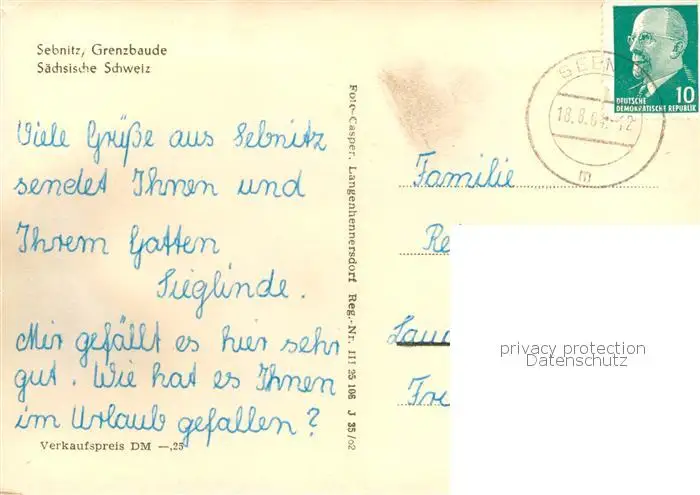 Sebnitz, Grenzbaude
Sächsische Schweiz
Viele Grüße aus Sebnitz
sendet Ihnen und
Ihrem Gatten
Sieglinde.
Mir gefällt es hier sehr
gut. Wie hat es Ihnen
im Urlaub gefallen?
Verkaufspreis DM —,25
Foto-Casper, Langenhennersdorf Reg.-Nr. III 25 106 J 35/62
DEUTSCHE
DEMOKRATISCHE REPUBLIK
10
Familie
privacy protection
Datenschutz